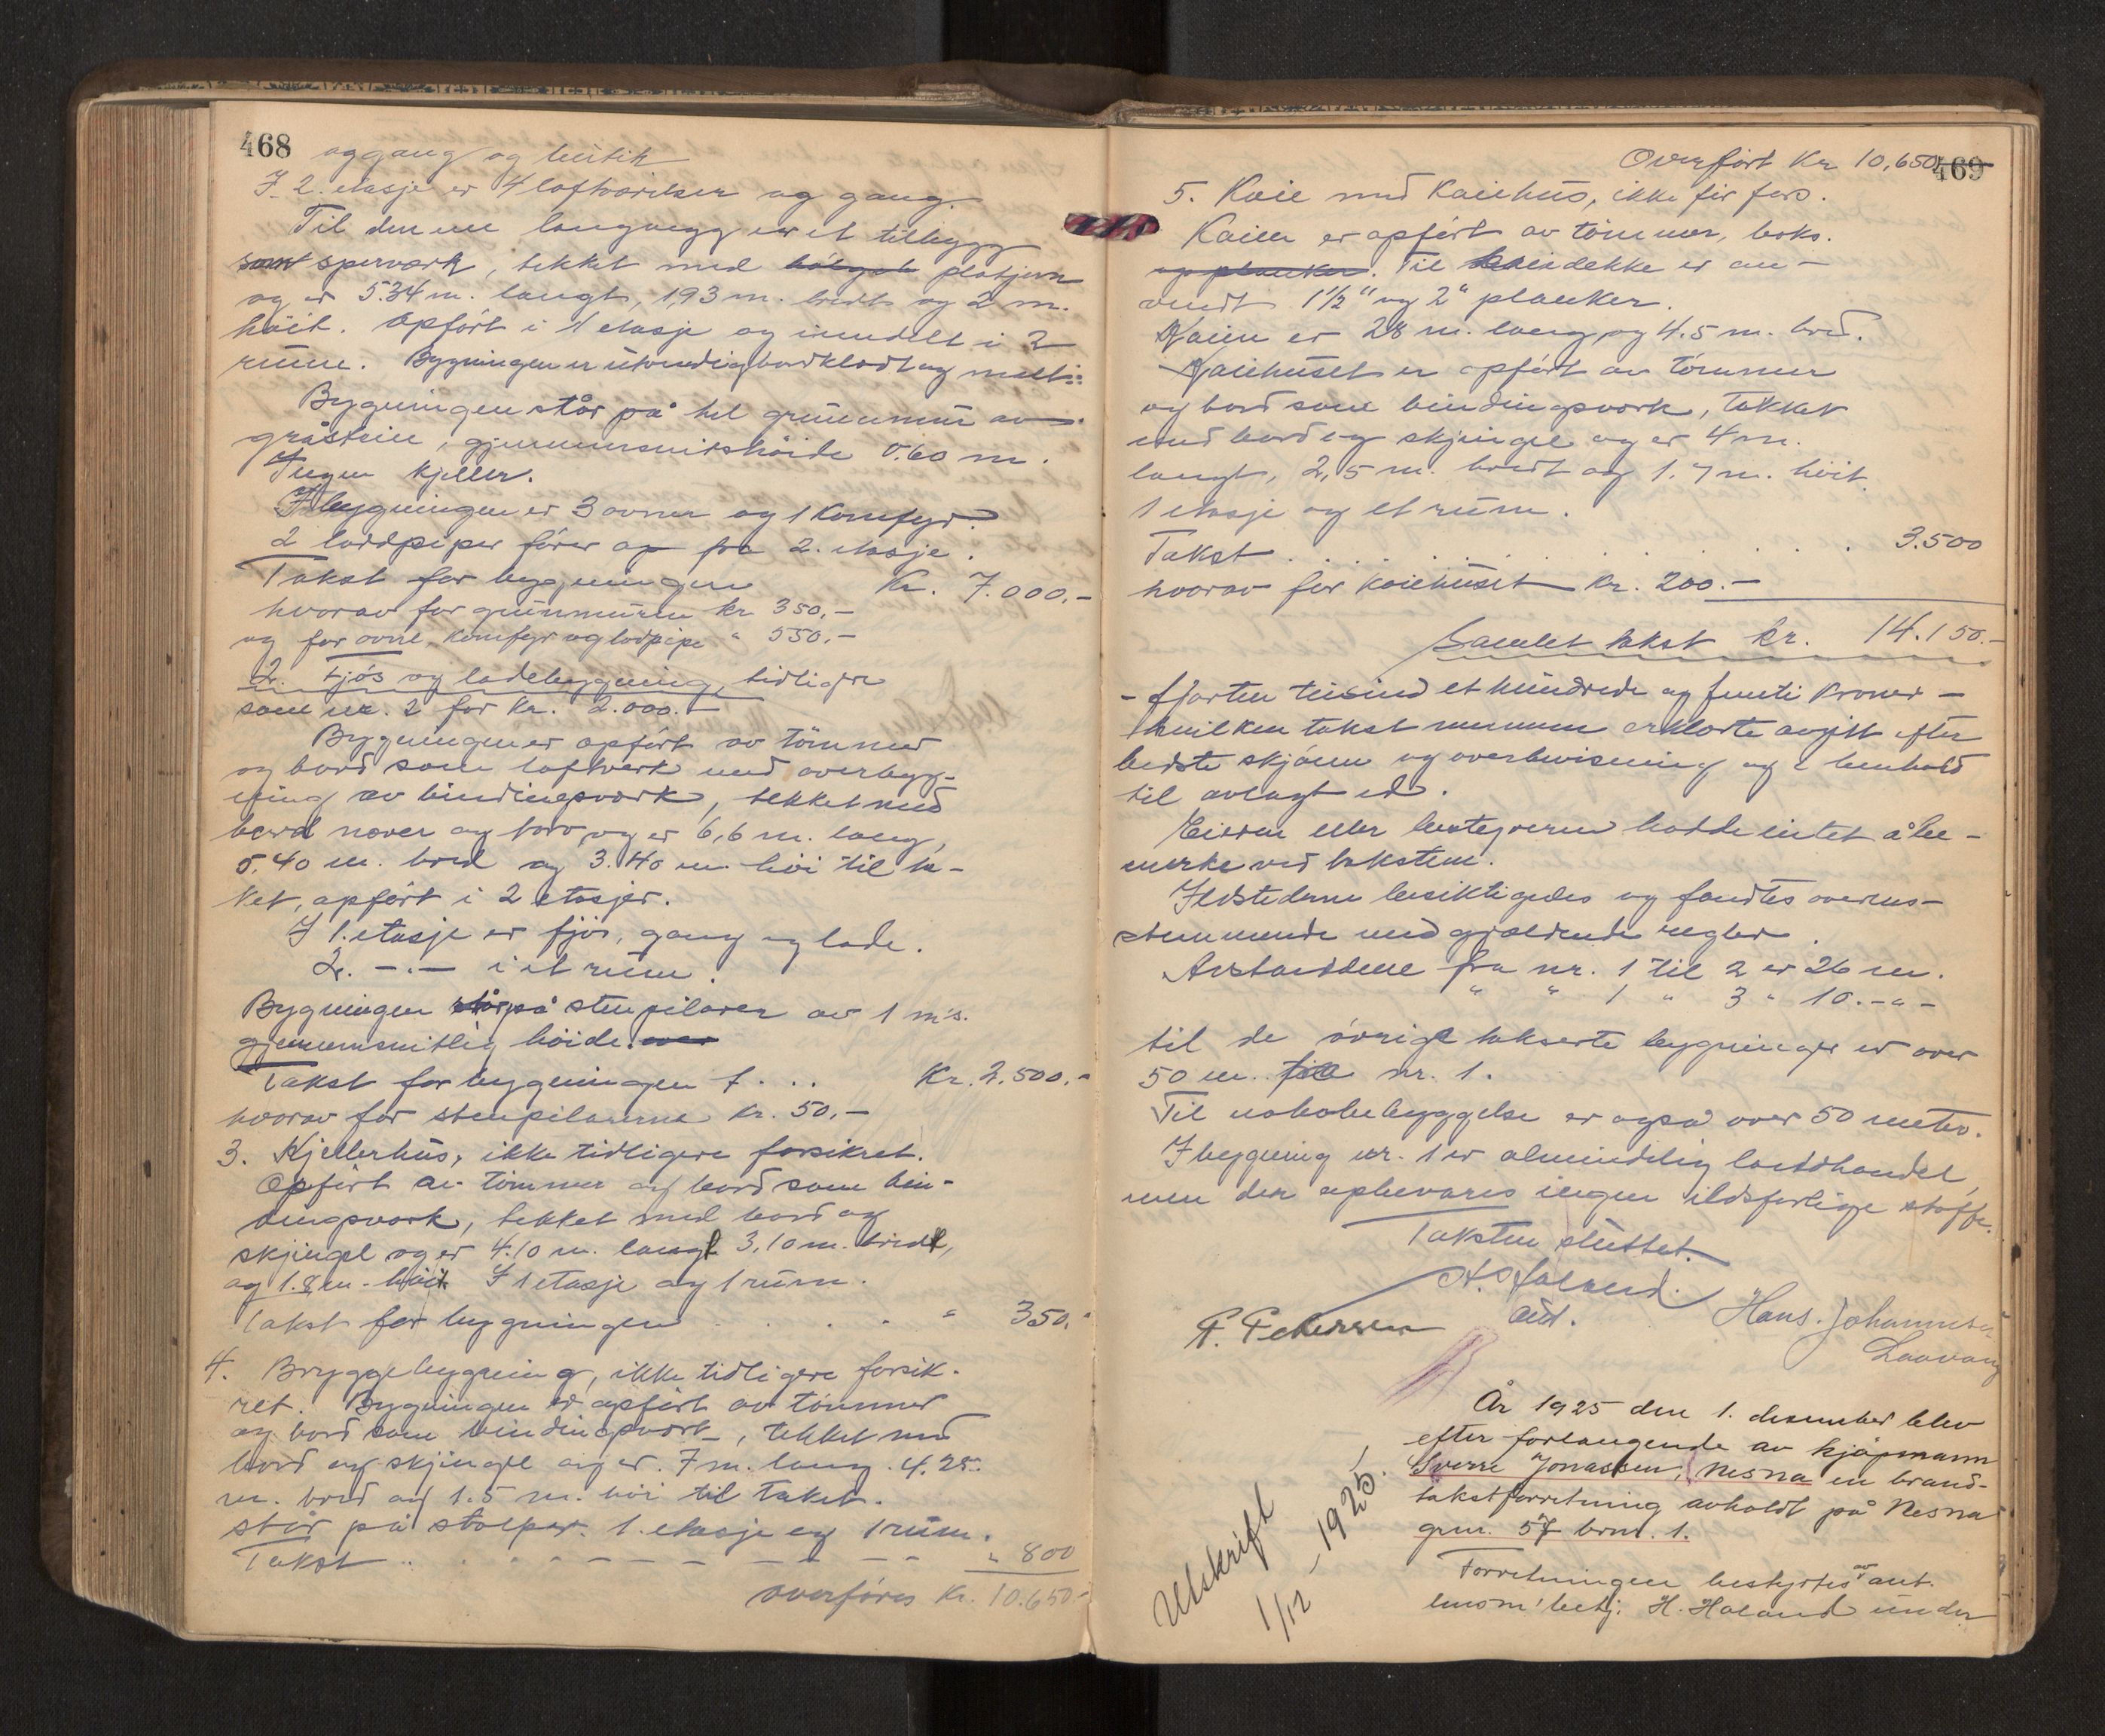 468
opgang og butik
I 2. etasje er 4 loftværelser og gang.
Til den ene langvegg er et tilbygg
som sperværk, tekket med bølget platjern
og er 5.34 m. langt, 1,93 m. bredt og 2 m.
høit. Opført i 1 etasje og inndelt i 2
rum. Bygningen er utvendig bordklædt og malt.
Bygningen står på hel grunnmur av
gråstein, gjennemsnitshøide 0.60 m.
Ingen kjeller.
I bygningen er 3 ovner og 1 komfyr.
2 loddpiper fører op fra 2. etasje.
Takst for bygningen Kr. 7.000.-
hvorav for grunnmuren kr 350.-
og for ovne, komfyr og lodpipe " 550.-
2. Fjøs og ladebygning, tidligere
som nr. 2 for kr. 2.000.-
Bygningen er opført av tømmer
og bord som lafteverk med overbyg-
ning av bindingsværk, tekket med
bord never og torv, og er 6,6 m. lang,
5.40 m. bred og 3.40 m. høi til ta-
ket, opført i 2 etasjer.
I 1. etasje er fjøs, gang og lade.
2. -.- i et rum.
Bygningen står på stenpilarer av 1 m's.
gjennemsnitlig høide. over
Takst for bygningen f. .. Kr. 2.500.-
hvorav for stenpilarerne kr. 50.-
3. Kjellerhus, ikke tidligere forsikret.
Opført av tømmer og bord som bin-
dingsværk, tekket med bord og
skjingel og er 4.10 m. langt 3.10 m. bredt,
og 1.8 m. høit I 1 etasje og 1 rum.
Takst for bygningen . . . . " 350.-
4. Bryggebygning, ikke tidligere forsik-
ret. Bygningen er opført av tømmer
og bord som bindingsværk, tekket med
bord og skjingel og er 7 m. lang. 4.25
m. bred og 1.5 m. høi til taket.
står på stolper. 1. etasje og 1 rum.
Takst .. - - - - - - - " 800
overføres kr. 10.650.-
469
Overført Kr 10,650
5. Kaie med Kaiehus, ikke før fors.
Kaien er opført av tømmer, boks.
og planker. Til kaiedekke er an-
vendt 1 1/2" og 2" planker.
Kaien er 28 m. lang og 4.5 m. bred.
Kaiehuset er opført av tømmer
og bord som bindingsværk, tekket
med bord og skjingel og er 4 m.
langt, 2,5 m. bredt og 1.7 m. høit.
1 etasje og et rum.
Takst . . . . . . . . . 3.500
hvorav for kaiehuset kr. 200.-
Samlet takst kr. 14.150.-
- fjorten tusind et hundrede og femti kroner -
hvilken takst mennene erklærte avgitt efter
bedste skjønn og overbevisning og i henhold
til avlagt ed.
Eieren eller bestyreren hadde intet å be-
merke ved taksten.
Ildstederne besiktigedes og fandtes overens-
stemmende med gjældende regler.
Avstandene fra nr. 1 til 2 er 26 m.
" " 1 " 3 " 10.-"-
til de øvrige takserte bygninger er over
50 m. fra nr. 1.
Til nabobebyggelse er også over 50 meter.
I bygning nr. 1 er almindelig landhandel,
men der opbevares ingen ildsfarlige stoffe.
Taksten sluttet.
H. Haland.
aut.
F. Petersen
Hans. Johannesen
Laavang
År 1925 den 1. desember blev
efter forlangende av kjøpmann
Sverre Jonassen, Nesna en brand-
takstforretning avholdt på Nesna
grnr. 57 brnr. 1.
Forretningen bestyrtes av aut.
lensm' betj. H. Haland under
Utskrift
1/12 - 1925.